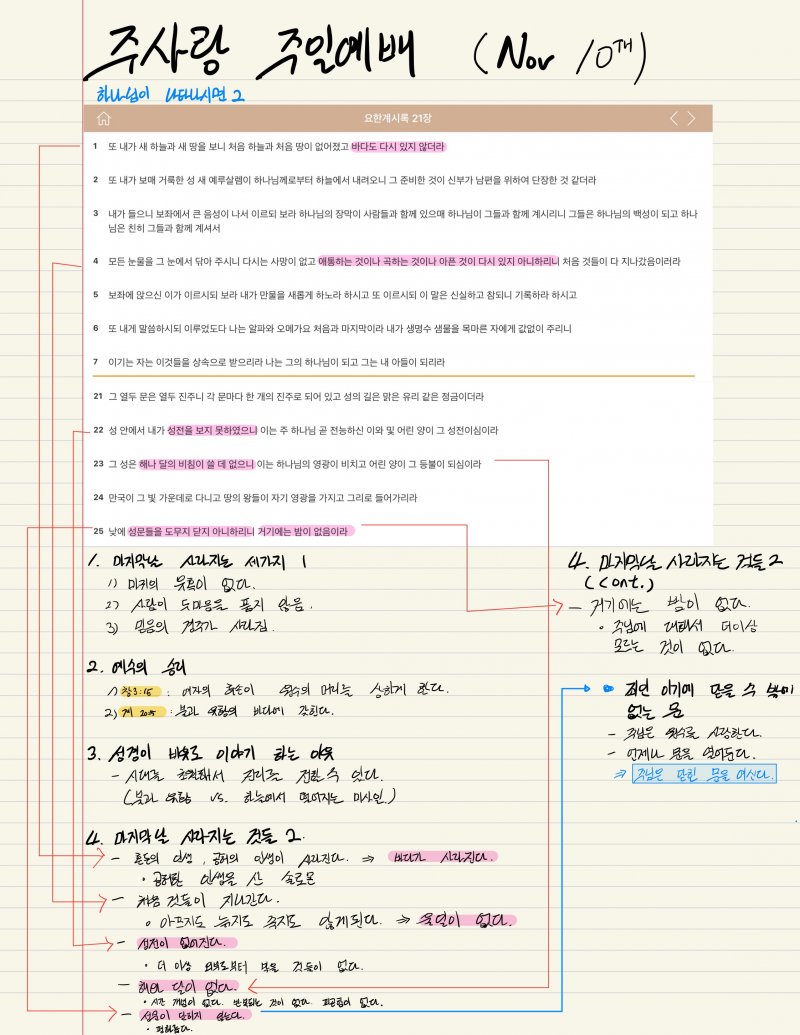 주사랑 주일예배 (Nov 10th)
하나님이 나타나시면 2
요한계시록 21장
1 또 내가 새 하늘과 새 땅을 보니 처음 하늘과 처음 땅이 없어졌고 바다도 다시 있지 않더라
2 또 내가 보매 거룩한 성 새 예루살렘이 하나님께로부터 하늘에서 내려오니 그 준비한 것이 신부가 남편을 위하여 단장한 것 같더라
3 내가 들으니 보좌에서 큰 음성이 나서 이르되 보라 하나님의 장막이 사람들과 함께 있으매 하나님이 그들과 함께 계시리니 그들은 하나님의 백성이 되고 하나
님은 친히 그들과 함께 계셔서
4 모든 눈물을 그 눈에서 닦아 주시니 다시는 사망이 없고 애통하는 것이나 곡하는 것이나 아픈 것이 다시 있지 아니하리니 처음 것들이 다 지나갔음이러라
5 보좌에 앉으신 이가 이르시되 보라 내가 만물을 새롭게 하노라 하시고 또 이르시되 이 말은 신실하고 참되니 기록하라 하시고
6 또 내게 말씀하시되 이루었도다 나는 알파와 오메가요 처음과 마지막이라 내가 생명수 샘물을 목마른 자에게 값없이 주리니
7 이기는 자는 이것들을 상속으로 받으리라 나는 그의 하나님이 되고 그는 내 아들이 되리라
21 그 열두 문은 열두 진주니 각 문마다 한 개의 진주로 되어 있고 성의 길은 맑은 유리 같은 정금이더라
22 성 안에서 내가 성전을 보지 못하였으니 이는 주 하나님 곧 전능하신 이와 및 어린 양이 그 성전이심이라
23 그 성은 해나 달의 비침이 쓸 데 없으니 이는 하나님의 영광이 비치고 어린 양이 그 등불이 되심이라
24 만국이 그 빛 가운데로 다니고 땅의 왕들이 자기 영광을 가지고 그리로 들어가리라
25 낮에 성문들을 도무지 닫지 아니하리니 거기에는 밤이 없음이라
1. 마지막날 사라지는 세가지 1
1) 마귀의 유혹이 없다.
2) 사람이 두마음을 품지 않음.
3) 믿음의 경주가 사라짐.
2. 예수의 승리
1) 창3:15 : 여자의 후손이 원수의 머리를 상하게 한다.
2) 계 20:15 : 불과 유황의 바다에 갇힌다.
3. 성경이 비유로 이야기 하는 이유
- 시대를 초월해서 진리를 전할 수 있다.
(불과 유황 vs. 하늘에서 떨어지는 미사일.)
4. 마지막날 사라지는 것들 2.
- 혼돈의 인생, 공허의 인생이 사라진다. ⇒ 바다가 사라진다.
• 공허한 인생을 산 솔로몬
- 처음 것들이 지나간다.
• 아프지도 늙지도 죽지도 않게된다. ⇒ 울일이 없다.
- 성전이 없어진다.
• 더 이상 외부로부터 막을 것들이 없다.
- 해와 달이 없다.
• 시간 개념이 없다. 반복되는 것이 없다. 피곤함이 없다.
- 성문이 닫히지 않는다.
4. 마지막날 사라지는 것들 2
(Cont.)
- 거기에는 밤이 없다.
• 주님에 대해서 더이상
모르는 것이 없다.
• 죄인 이기에 닫을 수 밖에
없는 문
- 주님은 원수를 사랑한다.
- 언제나 문을 열어둔다.
⇒ 주님은 닫힌 문을 여신다.